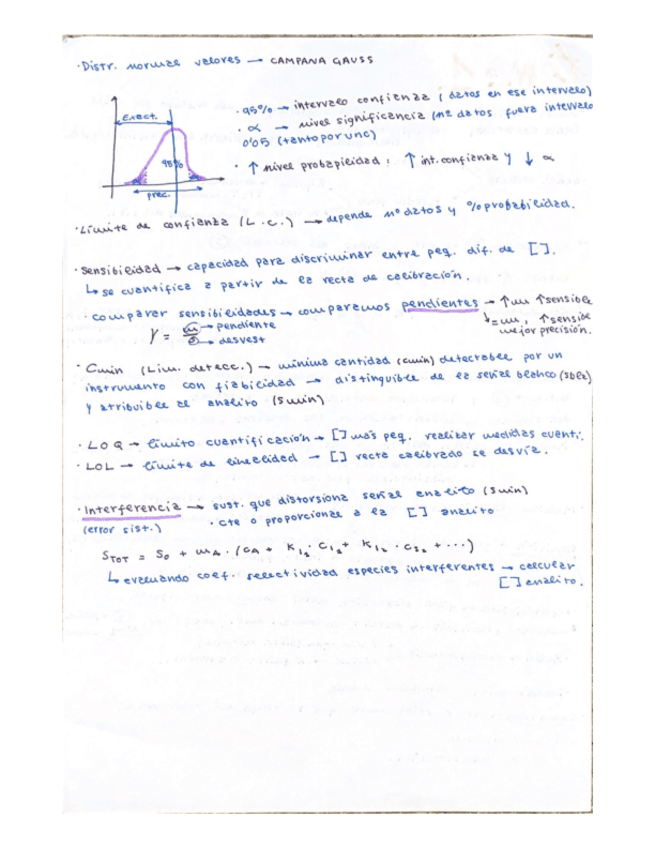 · Distr. normal valores → CAMPANA GAUSS
Exact.
95%
α
α
prec.
· 95% → intervalo confianza (datos en ese intervalo)
· α → nivel significancia (nº datos fuera intervalo
0'05 (tanto por uno)
· ↑ nivel probabilidad: ↑ int. confianza y ↓ α
· Límite de confianza (L.C.) → depende nº datos y % probabilidad.
· Sensibilidad → capacidad para discriminar entre peq. dif. de [ ].
↳ se cuantifica a partir de la recta de calibración.
· comparar sensibilidades → comparamos pendientes → ↑m ↑sensible
↳ = m, ↑sensible
mejor precisión.
γ = m/s → pendiente
→ desvest
· Cmin (Lim. detecc.) → mínima cantidad (cmin) detectable por un
instrumento con fiabilidad → distinguible de la señal blanco (Sblc)
y atribuible al analito (Smin)
· LOQ → límito cuantificación → [ ] más peq. realizar medidas cuanti.
· LOL → límite de linealidad → [ ] recta calibrado se desvía.
· Interferencia → sust. que distorsiona señal analito (Smin)
(error sist.) · cte o proporcional a la [ ] analito
STOT = S0 + mA · (CA + K12 · C12 + K12 · CS2 + ...)
↳ evaluando coef. selectividad especies interferentes → calcular
[ ] analito.